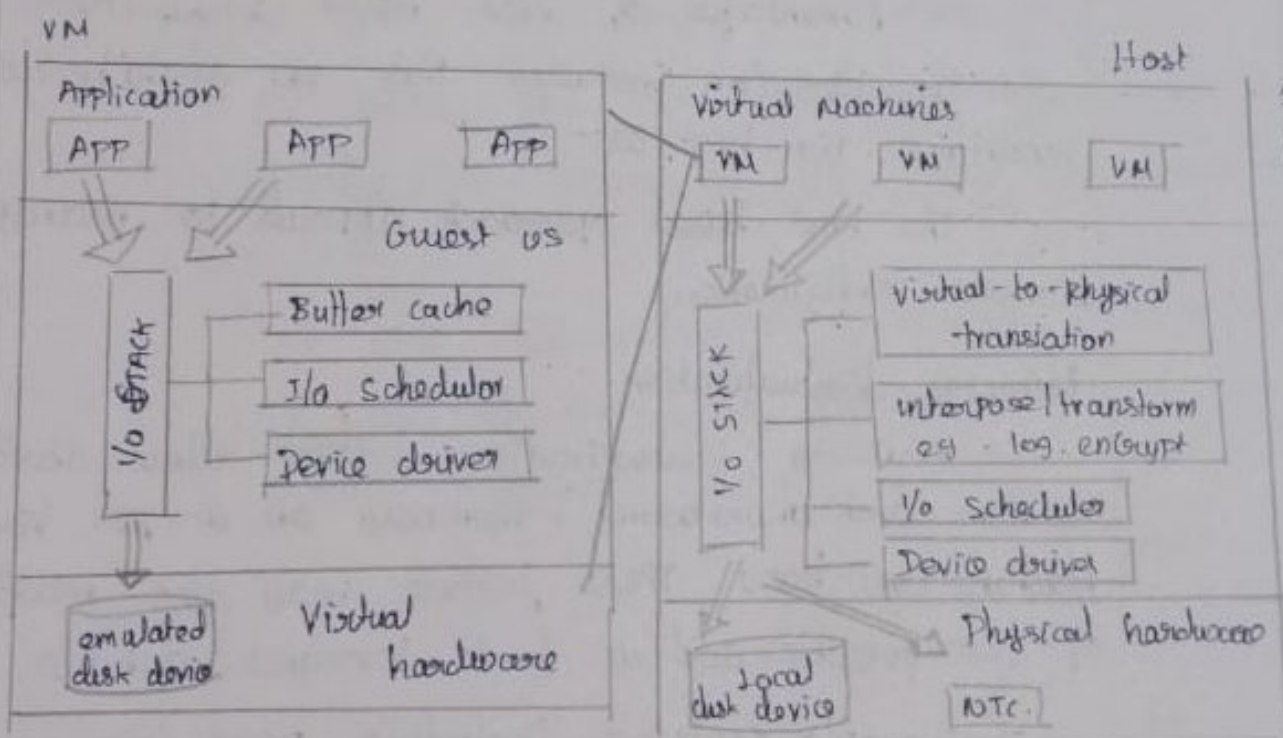 VM
Application
APP
APP
APP
Guest os
I/O STACK
Buffer cache
I/o schedulor
Device driver
emulated
disk device
Virtual
hardware
Host
Virtual Machines
VM
VM
VM
I/O STACK
virtual-to-physical
translation
interpose/transform
eg - log. encrypt
I/o scheduler
Device driver
Physical hardware
Local
disk device
NTC.